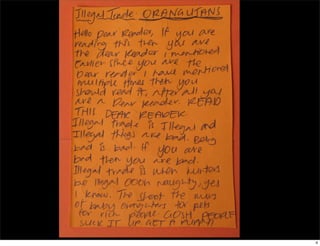 Illegal Trade: ORANGUTANS
Hello Dear Reader, If you are
reading this then you are
the Dear Reader I mentioned
earlier since you are the
Dear reader I have mentioned
multiple times then you
should read it, after all you
are a Dear Reader. READ
THIS DEAR READER
Illegal trade is Illegal and
Illegal things are bad. Being
bad is bad. If you are
bad then you are bad.
Illegal trade is when hunters
be illegal oooh naughty, yes
I know. The shoot the mums
of baby orangutans for pets
for rich people GOSH PEOPLE
SUCK IT UP GET A PUPPY!